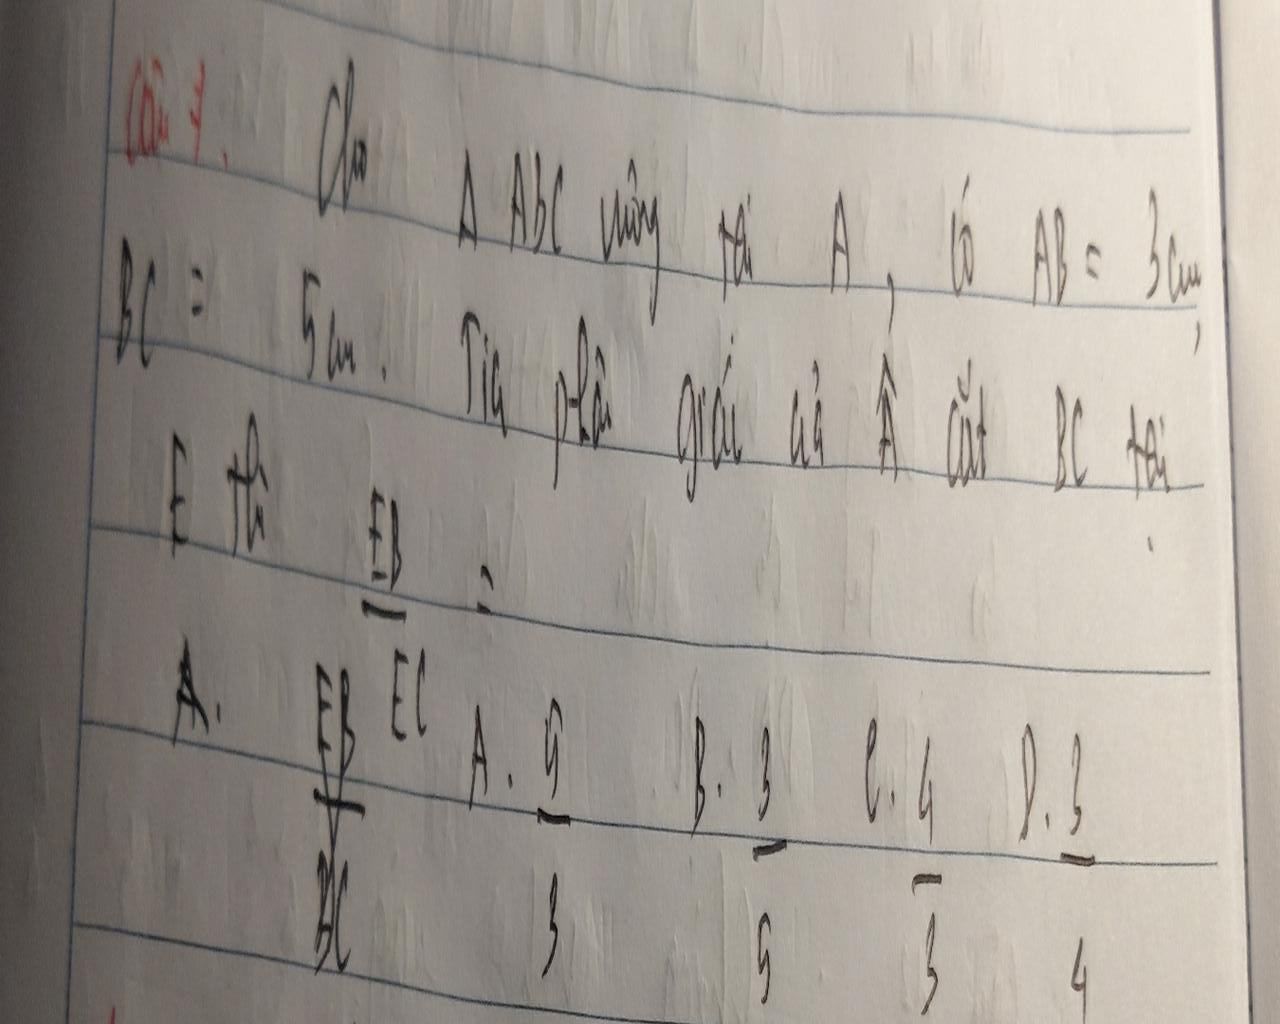 Câu 7. Cho Δ ABC vuông tại A, có AB = 3cm,
BC = 5cm. Tia phân giác của Â cắt BC tại
E thì EB/EC =
A. 5/3 B. 3/5 C. 4/3 D. 3/4